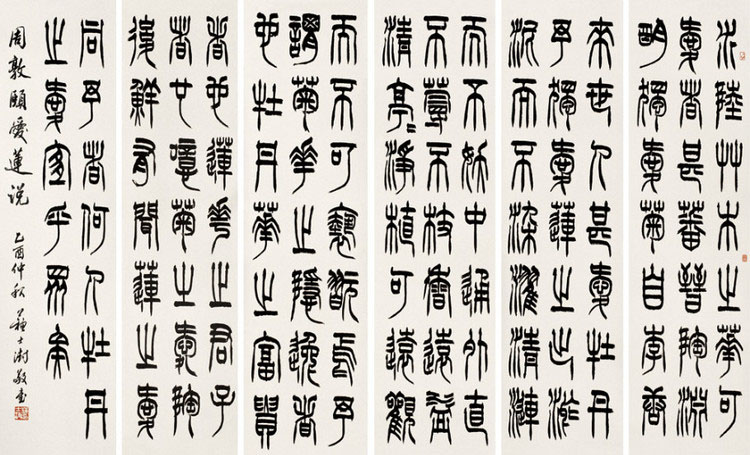 水陸艸木之華可
愛者甚蕃晉陶淵
明獨愛菊自李唐
來世人甚愛牡丹
予獨愛蓮之出淤
泥而不染濯清漣
而不妖中通外直
不蔓不枝香遠益
清亭〻淨植可遠觀
而不可褻翫焉予
謂菊華之隱逸者
也牡丹華之富貴
者也蓮華之君子
者也噫菊之愛陶
後鮮有聞蓮之愛
同予者何人牡丹
之愛宜乎眾矣
周敦頤愛蓮说 乙酉仲秋 蘇士澍敬書